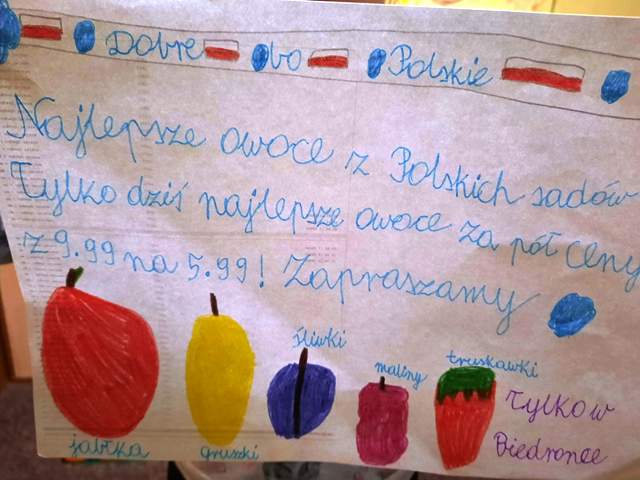 Dobre bo Polskie
Najlepsze owoce z Polskich sadów
Tylko dziś najlepsze owoce za pół ceny
z 9.99 na 5.99! Zapraszamy
śliwki
maliny
truskawki
jabłka
gruszki
Tylko w
Biedronce